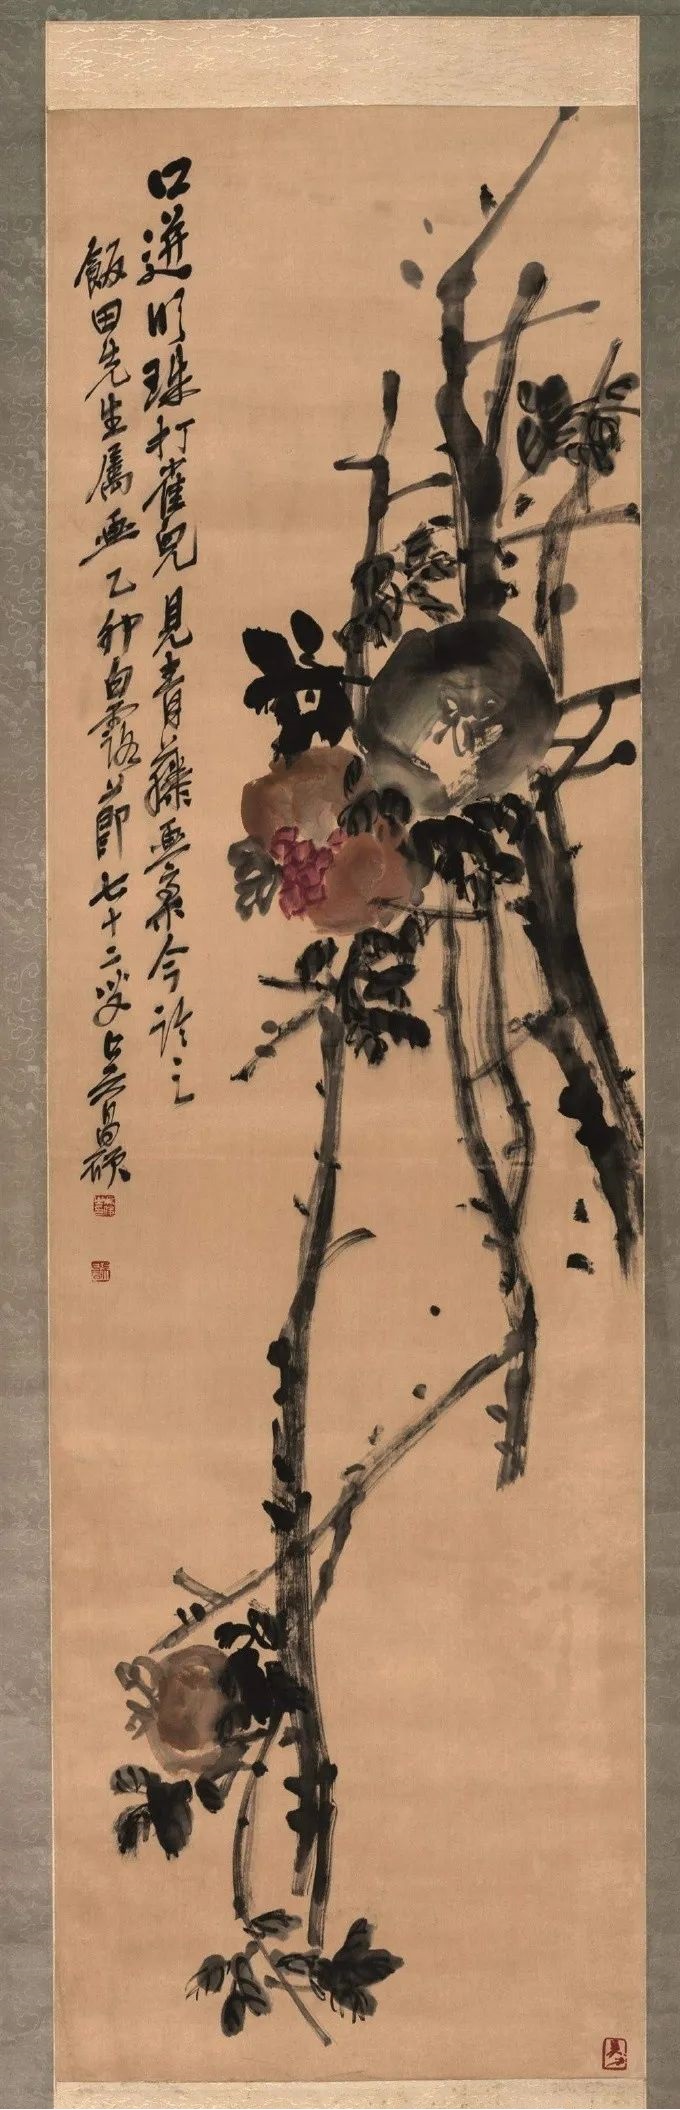 口迸明珠打雀兒見青藤画䆥今諭之
飯田先生属画乙卯白露節七十二叟吴昌碩